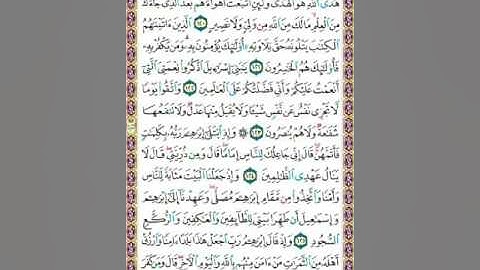 هُدَى ٱللَّهِ هُوَ ٱلْهُدَىٰ وَلَئِنِ ٱتَّبَعْتَ أَهْوَآءَهُم بَعْدَ ٱلَّذِى جَآءَكَ
مِنَ ٱلْعِلْمِ مَا لَكَ مِنَ ٱللَّهِ مِن وَلِىٍّ وَلَا نَصِيرٍ ١٢٠ ٱلَّذِينَ ءَاتَيْنَٰهُمُ
ٱلْكِتَٰبَ يَتْلُونَهُۥ حَقَّ تِلَاوَتِهِۦٓ أُو۟لَٰٓئِكَ يُؤْمِنُونَ بِهِۦ وَمَن يَكْفُرْ بِهِۦ
فَأُو۟لَٰٓئِكَ هُمُ ٱلْخَٰسِرُونَ ١٢١ يَٰبَنِىٓ إِسْرَٰٓءِيلَ ٱذْكُرُوا۟ نِعْمَتِىَ ٱلَّتِىٓ
أَنْعَمْتُ عَلَيْكُمْ وَأَنِّى فَضَّلْتُكُمْ عَلَى ٱلْعَٰلَمِينَ ١٢٢ وَٱتَّقُوا۟ يَوْمًا
لَّا تَجْزِى نَفْسٌ عَن نَّفْسٍ شَيْـًٔا وَلَا يُقْبَلُ مِنْهَا عَدْلٌ وَلَا تَنفَعُهَا
شَفَٰعَةٌ وَلَا هُمْ يُنصَرُونَ ١٢٣ ۞ وَإِذِ ٱبْتَلَىٰٓ إِبْرَٰهِـۧمَ رَبُّهُۥ بِكَلِمَٰتٍ
فَأَتَمَّهُنَّ قَالَ إِنِّى جَاعِلُكَ لِلنَّاسِ إِمَامًا قَالَ وَمِن ذُرِّيَّتِى قَالَ لَا
يَنَالُ عَهْدِى ٱلظَّٰلِمِينَ ١٢٤ وَإِذْ جَعَلْنَا ٱلْبَيْتَ مَثَابَةً لِّلنَّاسِ
وَأَمْنًا وَٱتَّخِذُوا۟ مِن مَّقَامِ إِبْرَٰهِـۧمَ مُصَلًّى وَعَهِدْنَآ إِلَىٰٓ إِبْرَٰهِـۧمَ
وَإِسْمَٰعِيلَ أَن طَهِّرَا بَيْتِىَ لِلطَّآئِفِينَ وَٱلْعَٰكِفِينَ وَٱلرُّكَّعِ
ٱلسُّجُودِ ١٢٥ وَإِذْ قَالَ إِبْرَٰهِـۧمُ رَبِّ ٱجْعَلْ هَٰذَا بَلَدًا ءَامِنًا وَٱرْزُقْ
أَهْلَهُۥ مِنَ ٱلثَّمَرَٰتِ مَنْ ءَامَنَ مِنْهُم بِٱللَّهِ وَٱلْيَوْمِ ٱلْـَٔاخِرِ قَالَ وَمَن كَفَرَ